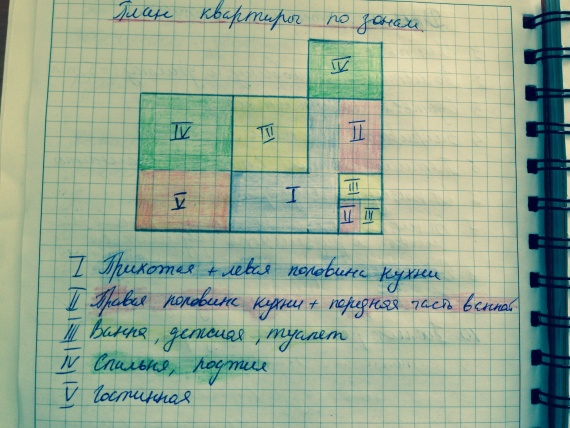 План квартиры по зонам
IV
IV III II
III
V I
II III
I Прихожая + левая половина кухни
II Правая половина кухни + передняя часть ванной
III Ванна, детская, туалет
IV Спальня, лоджия
V Гостинная